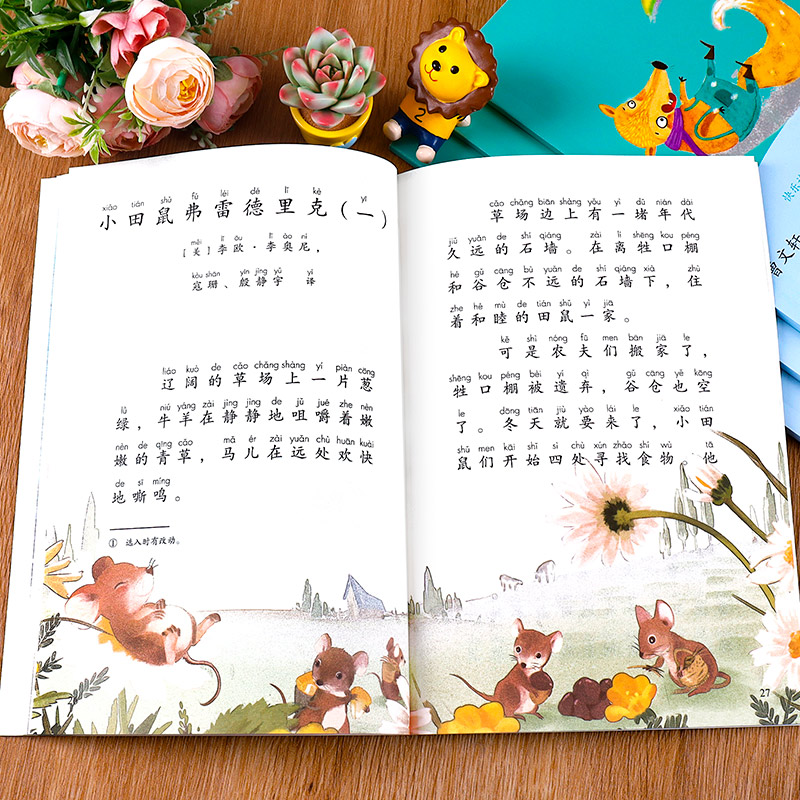 xiǎo tián shǔ fú léi dé lǐ kè yī
小田鼠弗雷德里克（一）
měi lǐ ōu lǐ ào ní
［美］李欧·李奥尼，
kòu shān yīn jìng yǔ yì
寇珊、殷静宇 译
liáo kuò de cǎo chǎng shàng yí piàn cōng
辽阔的草场上一片葱
lǜ niú yáng zài jìng jìng de jǔ jué zhe nèn
绿，牛羊在静静地咀嚼着嫩
nèn de qīng cǎo mǎ ér zài yuǎn chù huān kuài
嫩的青草，马儿在远处欢快
de sī míng
地嘶鸣。
① 选入时有改动。
cǎo chǎng biān shàng yǒu yì dǔ nián dài
草场边上有一堵年代
jiǔ yuǎn de shí qiáng zài lí shēng kou péng
久远的石墙。在离牲口棚
hé gǔ cāng bù yuǎn de shí qiáng xià zhù
和谷仓不远的石墙下，住
zhe hé mù de tián shǔ yì jiā
着和睦的田鼠一家。
kě shì nóng fū men bān jiā le
可是农夫们搬家了，
shēng kou péng bèi yí qì gǔ cāng yě kōng
牲口棚被遗弃，谷仓也空
le dōng tiān jiù yào lái le xiǎo tián
了。冬天就要来了，小田
shǔ men kāi shǐ sì chù xún zhǎo shí wù tā
鼠们开始四处寻找食物。他
27
快乐
曹文轩